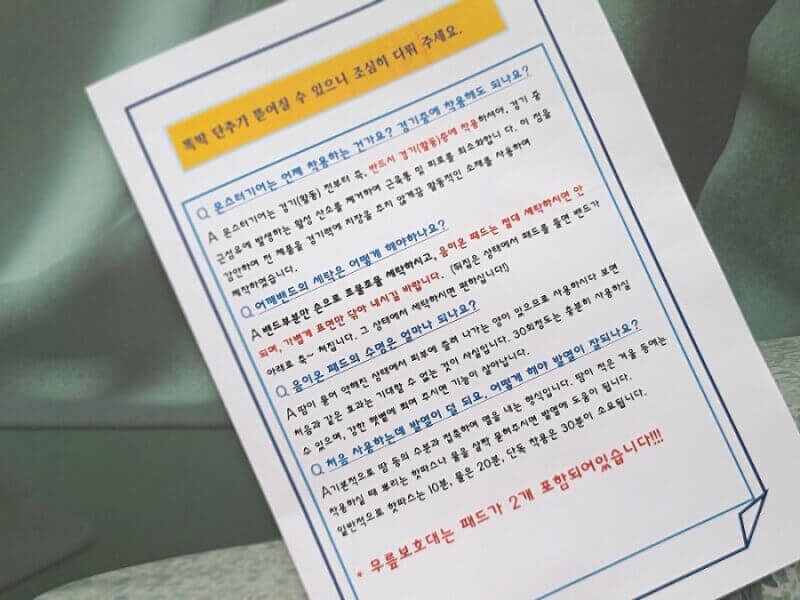 똑딱 단추가 뜯어질 수 있으니 조심히 다뤄 주세요.
Q 몬스터기어는 언제 착용하는 건가요? 경기중에 착용해도 되나요?
A 몬스터기어는 경기(활동) 전부터 쭉, 반드시 경기(활동)중에 착용하셔야, 경기 중
근섬유에 발생하는 활성 산소를 제거하여 근육통 및 피로를 최소화합니다. 이 점을
감안하여 전 제품을 경기력에 지장을 주지 않게끔 활동적인 소재를 사용하여
제작하였습니다.
Q 어깨밴드의 세탁은 어떻게 해야하나요?
A 밴드부분만 손으로 조물조물 세탁하시고, 음이온 패드는 절대 세탁하시면 안
되며, 가볍게 표면만 닦아 내시길 바랍니다. (뒤집은 상태에서 패드를 들면 밴드가
아래로 축~ 쳐집니다. 그 상태에서 세탁하시면 편하십니다!)
Q 음이온 패드의 수명은 얼마나 되나요?
A 땀이 묻어 약해진 상태에서 피부에 쓸려 나가는 양이 있으므로 사용하시다 보면
처음과 같은 효과는 기대할 수 없는 것이 사실입니다. 30회정도는 충분히 사용하실
수 있으며, 강한 햇볕에 쬐여 주시면 기능이 살아납니다.
Q 처음 사용하는데 발열이 덜 되요. 어떻게 해야 발열이 잘되나요?
A 기본적으로 땀 등의 수분과 접촉하여 열을 내는 형식입니다. 땀이 적은 겨울 등에는
착용하실 때 뿌리는 핫파스나 물을 살짝 묻혀주시면 발열에 도움이 됩니다.
일반적으로 핫파스는 10분, 물은 20분, 단독 착용은 30분이 소요됩니다.
* 무릎보호대는 패드가 2개 포함되어있습니다!!!